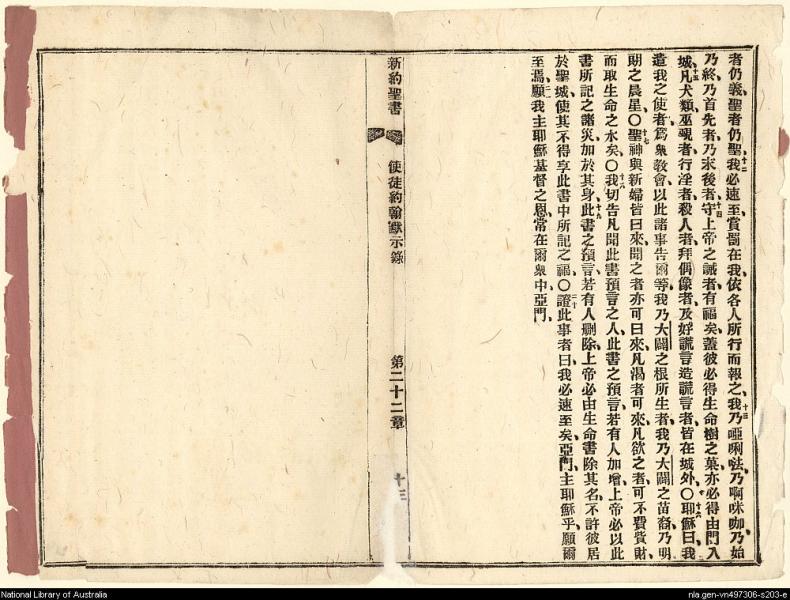 者仍義、聖者仍聖、十二我必速至、賞罰在我、依各人所行而報之、十三我乃啞唎㖿、乃啊咪咖、乃始
乃終、乃首先者、乃末後者、十四守上帝之誡者有福矣、蓋彼必得生命樹之菓、亦必得由門入
城、十五凡犬類、巫覡者、行淫者、殺人者、拜偶像者、及好謊言造謊言者、皆在城外○十六耶穌曰、我
遣我之使者、爲衆教會、以此諸事告爾等、我乃大闢之根所生者、我乃大闢之苗裔、乃明
朗之晨星○十七聖神與新婦皆曰來、聞之者亦可曰來、凡渴者可來、凡欲之者、可不費貲財
而取生命之水矣○十八我切告凡聞此書預言之人、此書之預言、若有人加增、上帝必以此
書所記之諸災加於其身、十九此書之預言、若有人刪除、上帝必由生命書除其名、不許彼居
於聖城、使其不得享此書中所記之福○二十證此事者曰、我必速至矣、亞門、主耶穌乎、願爾
至焉、二一願我主耶穌基督之恩、常在爾衆中、亞門、
新約聖書 使徒約翰默示錄 第二十二章 十三
National Library of Australia
nla.gen-vn497306-s203-e